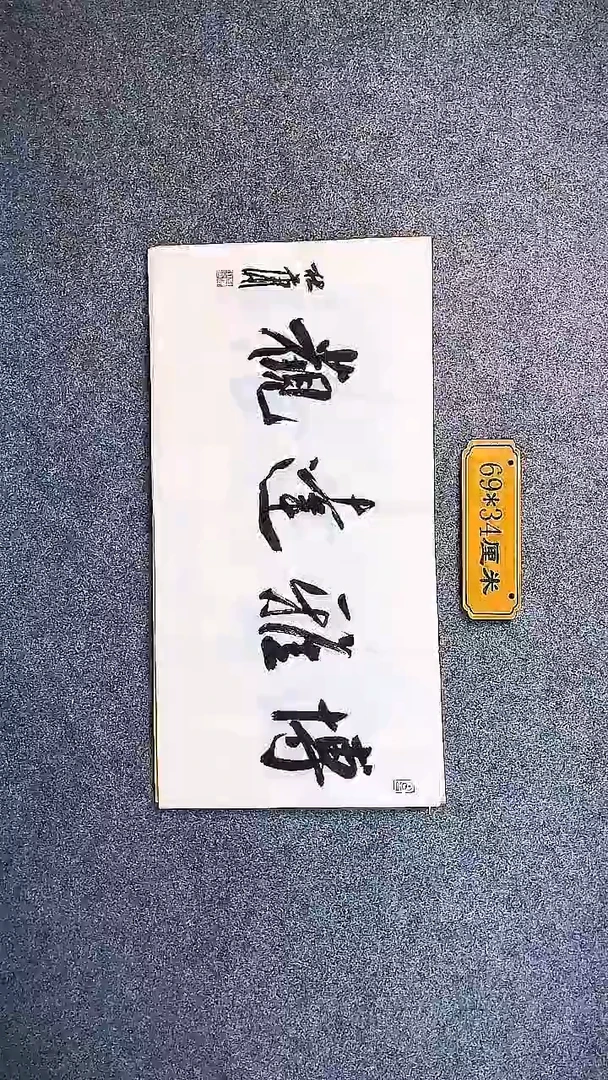 博雅達觀
69*34厘米